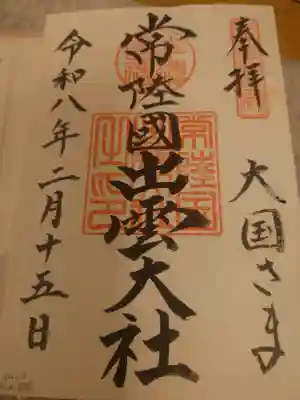 奉拝
大国さま
常陸國出雲大社
令和八年二月十五日